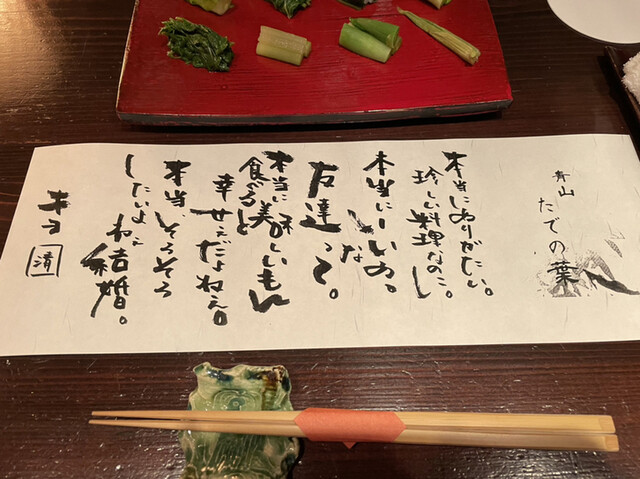 青山
たでの葉
本当にありがたい。
珍しい料理なのに。
本当にいいの。
いいな
友達って。
本当に美味しいもん
食べると
幸せだよねぇ。
本当、そろそろ
したいよねぇ結婚。
キヨ
清